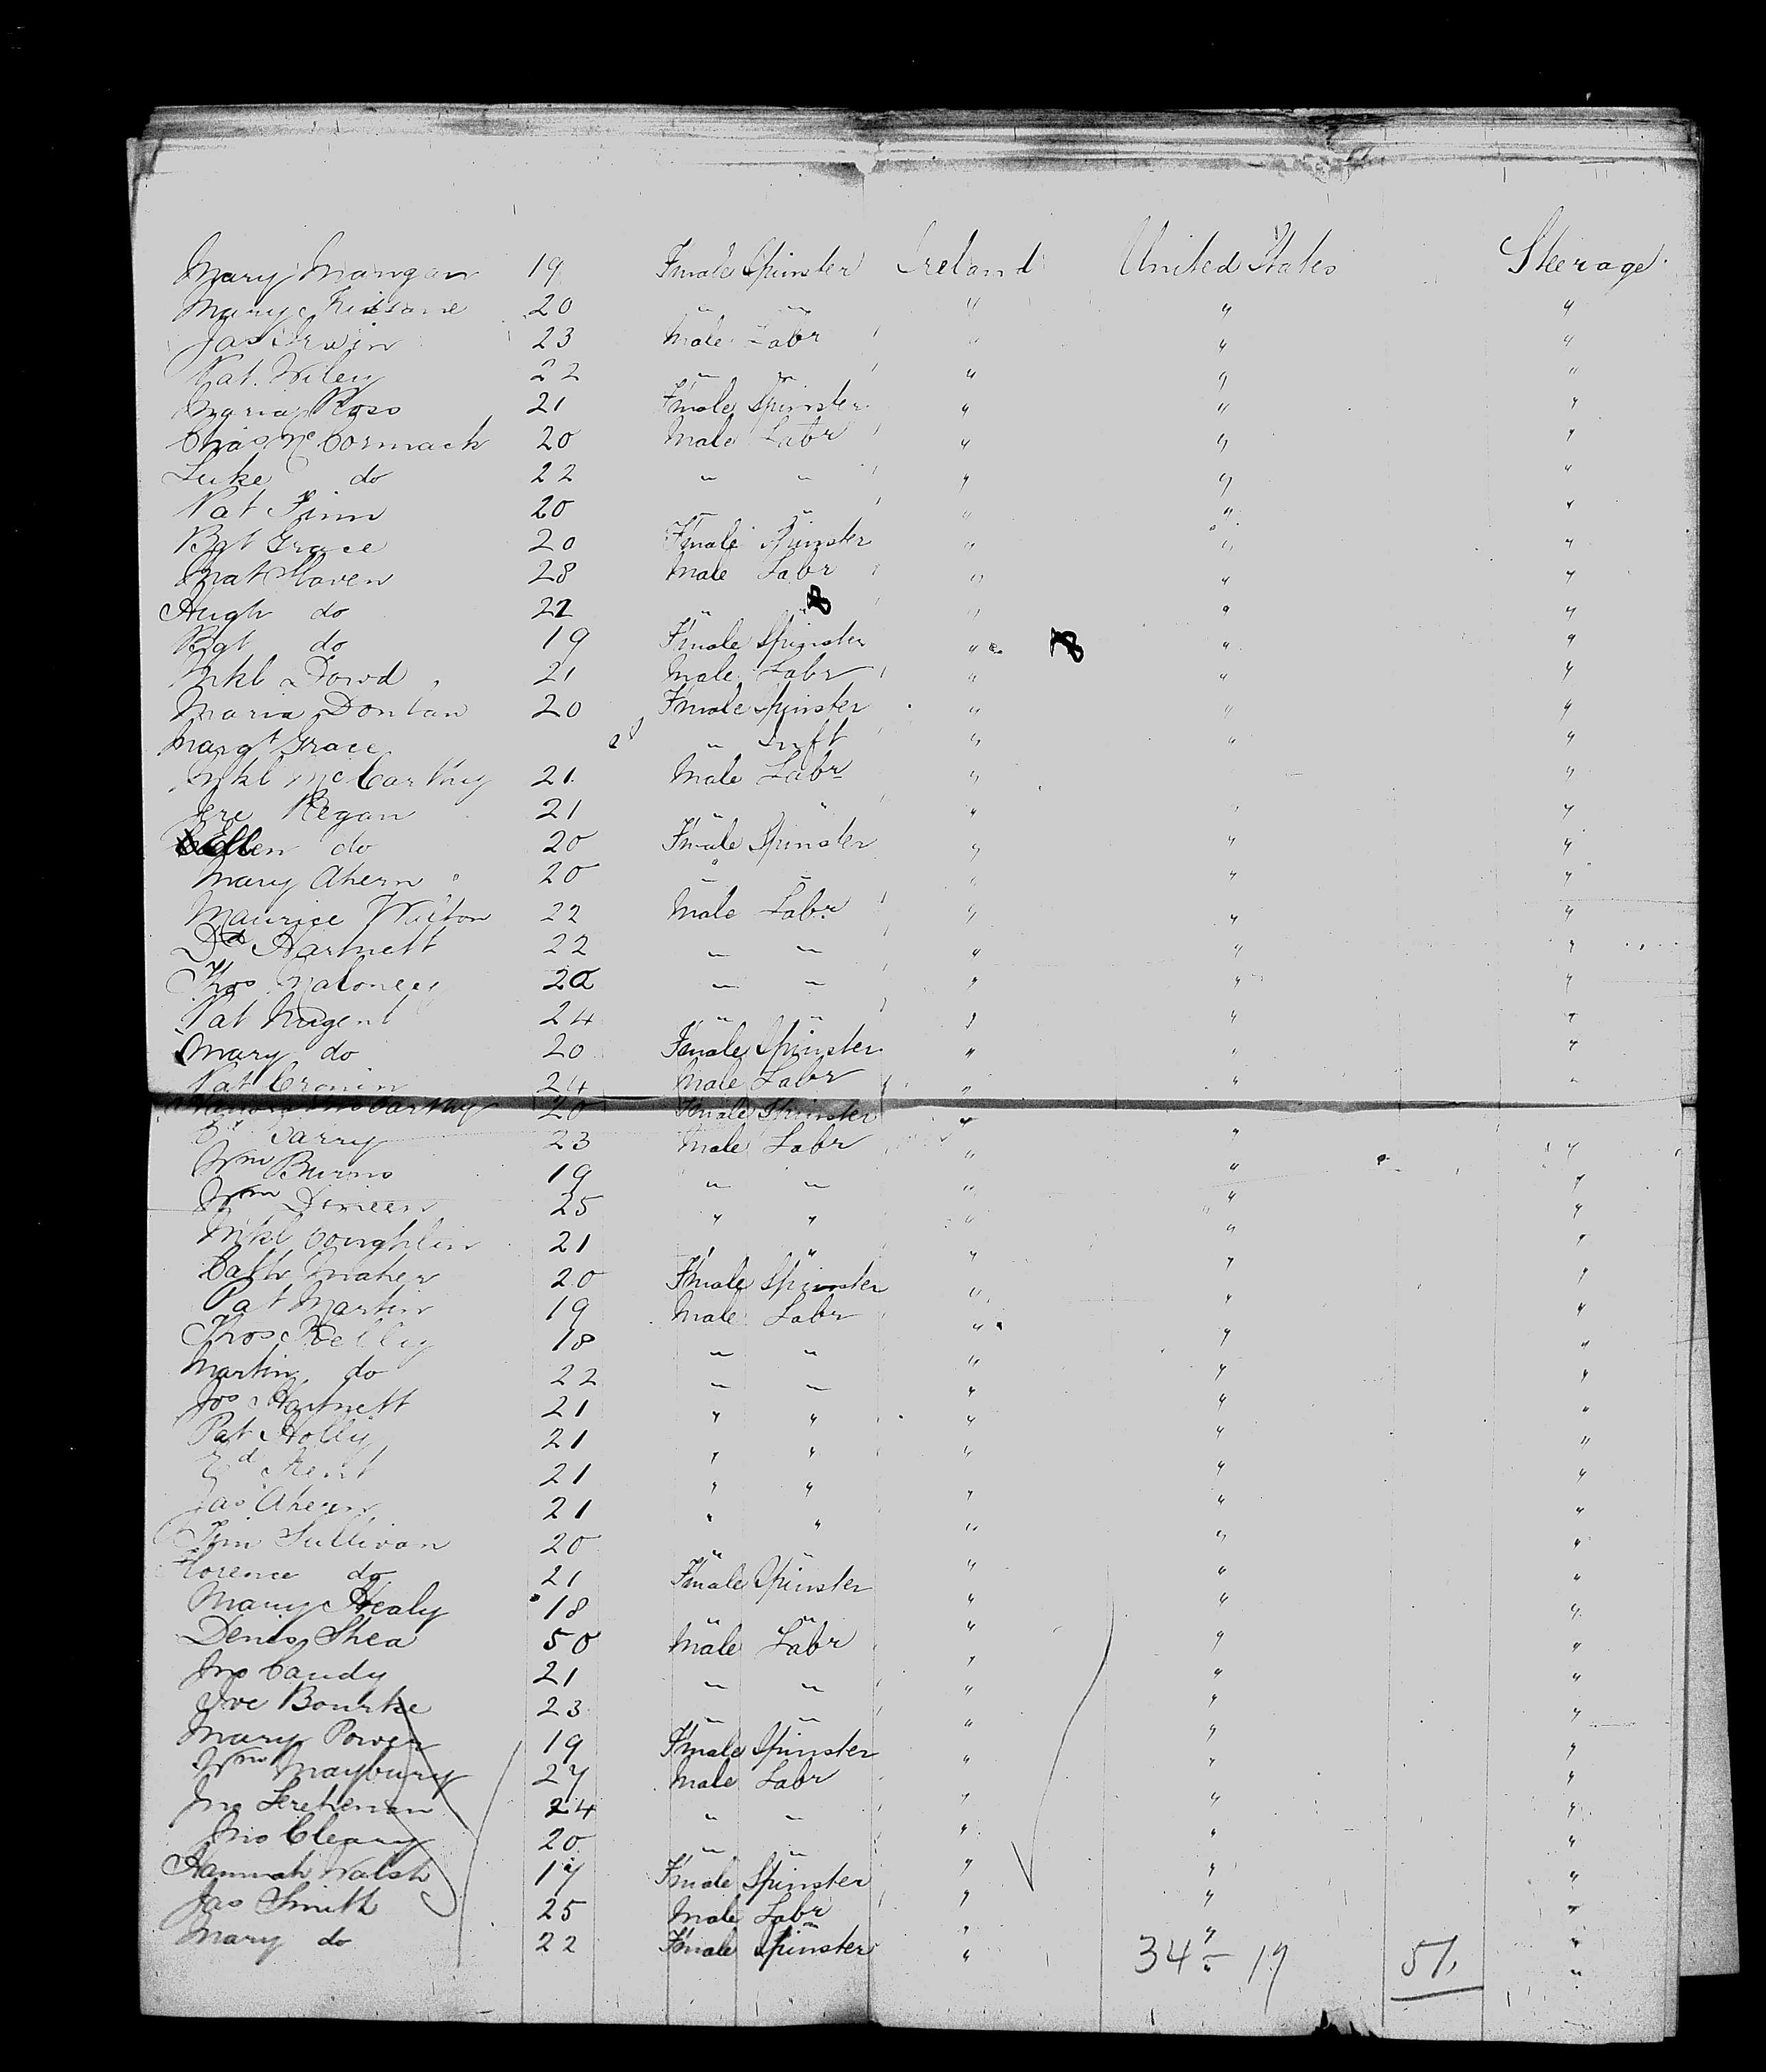 Mary Mangan 19 Female Spinster Ireland United States Steerage
Mary Kissane 20 " " " " "
Jas Irwin 23 Male Labr " " "
Pat. Wiley 22 " " " " "
Maria Ross 21 Female Spinster " " "
Chas McCormack 20 Male Labr " " "
Luke do 22 " " " " "
Pat Finn 20 " " " " "
Bgt Grace 20 Female Spinster " " "
Mat Slaven 28 Male Labr " " "
Hugh do 22 " " " " "
Bgt do 19 Female Spinster " " "
Mkl Dowd 21 Male Labr " " "
Maria Donlan 20 Female Spinster " " "
Margt Grace " Inft " " "
Mkl McCarthy 21 Male Labr " " "
Jre Regan 21 " " " " "
Ellen do 20 Female Spinster " " "
Mary Ahern 20 " " " " "
Maurice Walton 22 Male Labr " " "
Dd Hartnett 22 " " " " "
Thos Maloney 20 " " " " "
Pat Nugent 24 " " " " "
Mary do 20 Female Spinster " " "
Pat Cronin 24 Male Labr " " "
McCarthy 20 Female Spinster " " "
Barry 23 Male Labr " " "
Wm Burns 19 " " " " "
Wm Dineen 25 " " " " "
Mkl Coughlin 21 " " " " "
Cath Maher 20 Female Spinster " " "
Pat Martin 19 Male Labr " " "
Thos Kelly 18 " " " " "
Martin do 22 " " " " "
Jos Hartnett 21 " " " " "
Pat Holly 21 " " " " "
Ed Kent 21 " " " " "
Jas Ahern 21 " " " " "
Tim Sullivan 20 " " " " "
Florence do 21 Female Spinster " " "
Mary Healy 18 " " " " "
Denis Shea 50 Male Labr " " "
Jno Candy 21 " " " " "
Bourke 23 " " " " "
Mary Power 19 Female Spinster " " "
Wm Maybury 27 Male Labr " " "
Jno 24 " " " " "
Jno Cleary 20 " " " " "
Hannah Walsh 17 Female Spinster " " "
Jas Smith 25 Male Labr " " "
Mary do 22 Female Spinster " " "
34 - 17 51